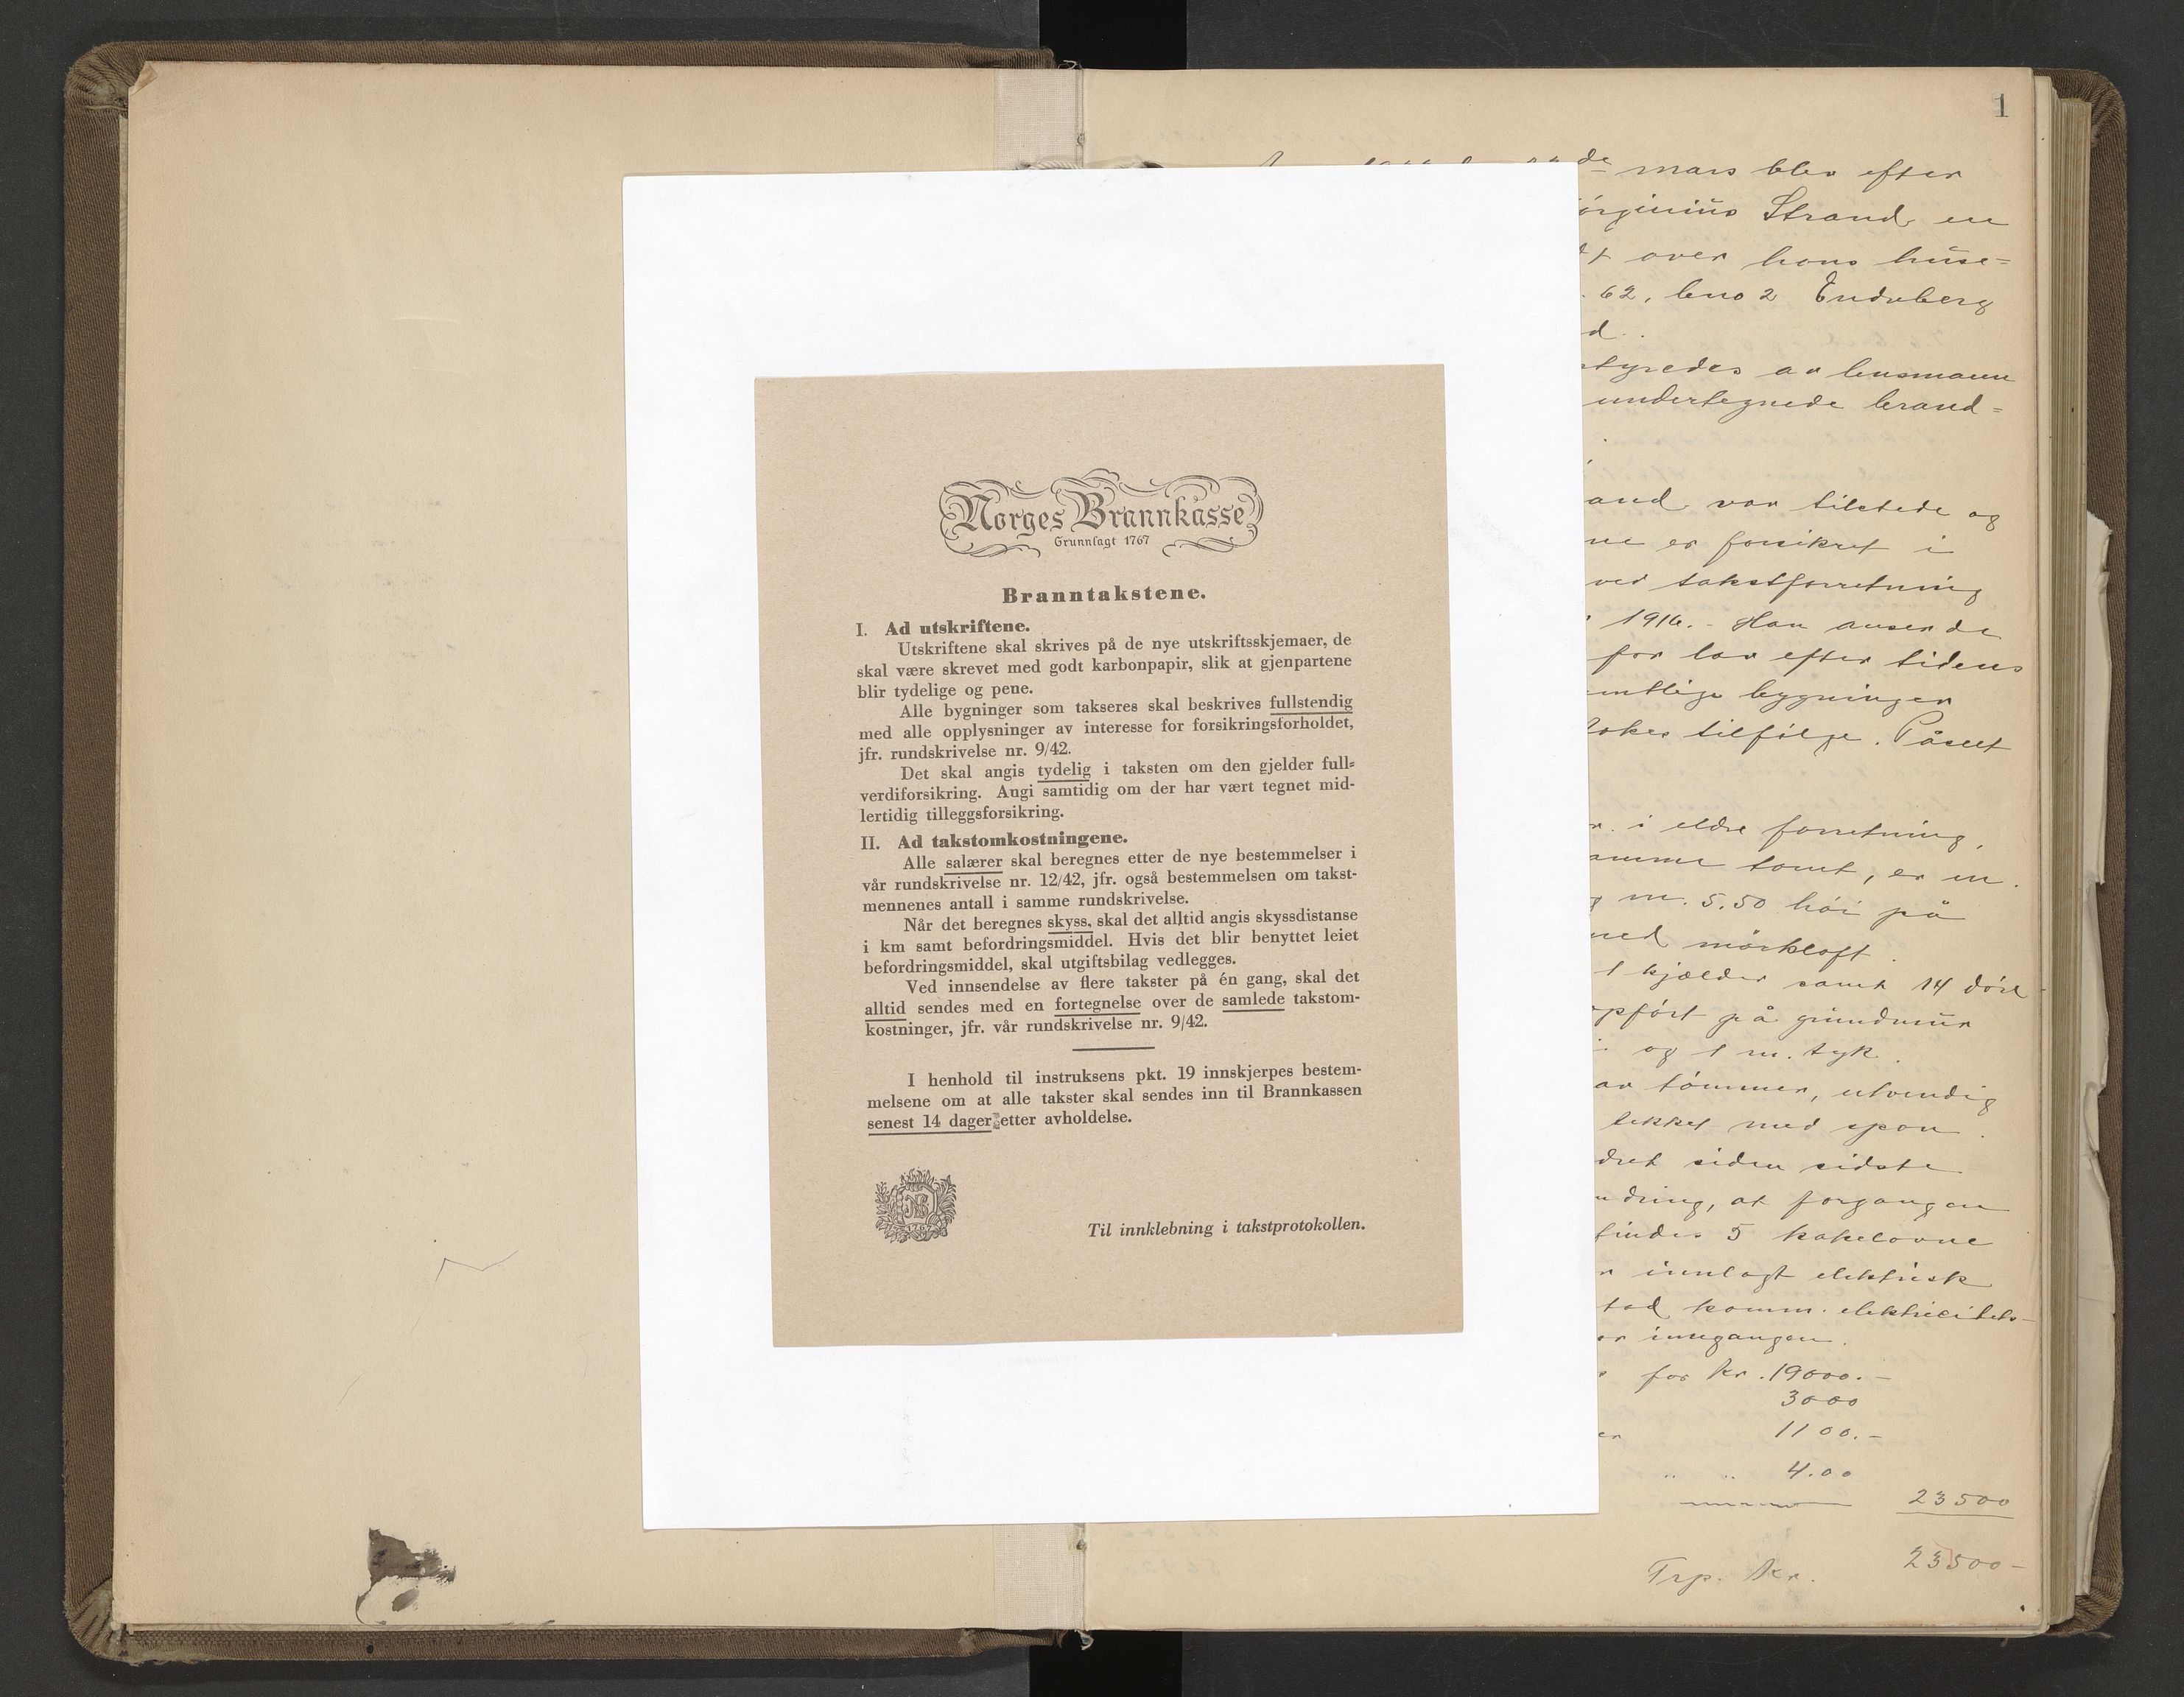 Norges Brannkasse
Grunnlagt 1767
Branntakstene.
I. Ad utskriftene.
Utskriftene skal skrives på de nye utskriftsskjemaer, de
skal være skrevet med godt karbonpapir, slik at gjenpartene
blir tydelige og pene.
Alle bygninger som takseres skal beskrives fullstendig
med alle opplysninger av interesse for forsikringsforholdet,
jfr. rundskrivelse nr. 9/42.
Det skal angis tydelig i taksten om den gjelder full-
verdiforsikring. Angi samtidig om der har vært tegnet mid-
lertidig tilleggsforsikring.
II. Ad takstomkostningene.
Alle salærer skal beregnes etter de nye bestemmelser i
vår rundskrivelse nr. 12/42, jfr. også bestemmelsen om takst-
mennenes antall i samme rundskrivelse.
Når det beregnes skyss, skal det alltid angis skyssdistanse
i km samt befordringsmiddel. Hvis det blir benyttet leiet
befordringsmiddel, skal utgiftsbilag vedlegges.
Ved innsendelse av flere takster på én gang, skal det
alltid sendes med en fortegnelse over de samlede takstom-
kostninger, jfr. vår rundskrivelse nr. 9/42.
I henhold til instruksens pkt. 19 innskjerpes bestem-
melsene om at alle takster skal sendes inn til Brannkassen
senest 14 dager etter avholdelse.
NB
1767
Til innklebning i takstprotokollen.
1
mars blev efter
Strand en
over hans huse=
62, bno 2
d.
av lensmann
undertegnede brand=
and var tilstede og
ne er forsikret i
ved takstforretning
1916. - Han anser de
for lav efter tidens
bygninger
tilfölge. Påsett
i eldre forretning,
amme tomt, er en
m. 5.50 höi på
med mörkloft.
1 kjælder samt 14 döre
opfört på grundmur
og 1 m. tyk.
av tömmer, utvendig
tekket med spon.
dret siden sidste
ndring, at forgangen
findes 5 kakelovne
innlagt elektrisk
komm. elektricitets-
inngangen.
for Kr. 19000.-
3000
1100.-
4.00
23500
Trp. Kr. 23500-